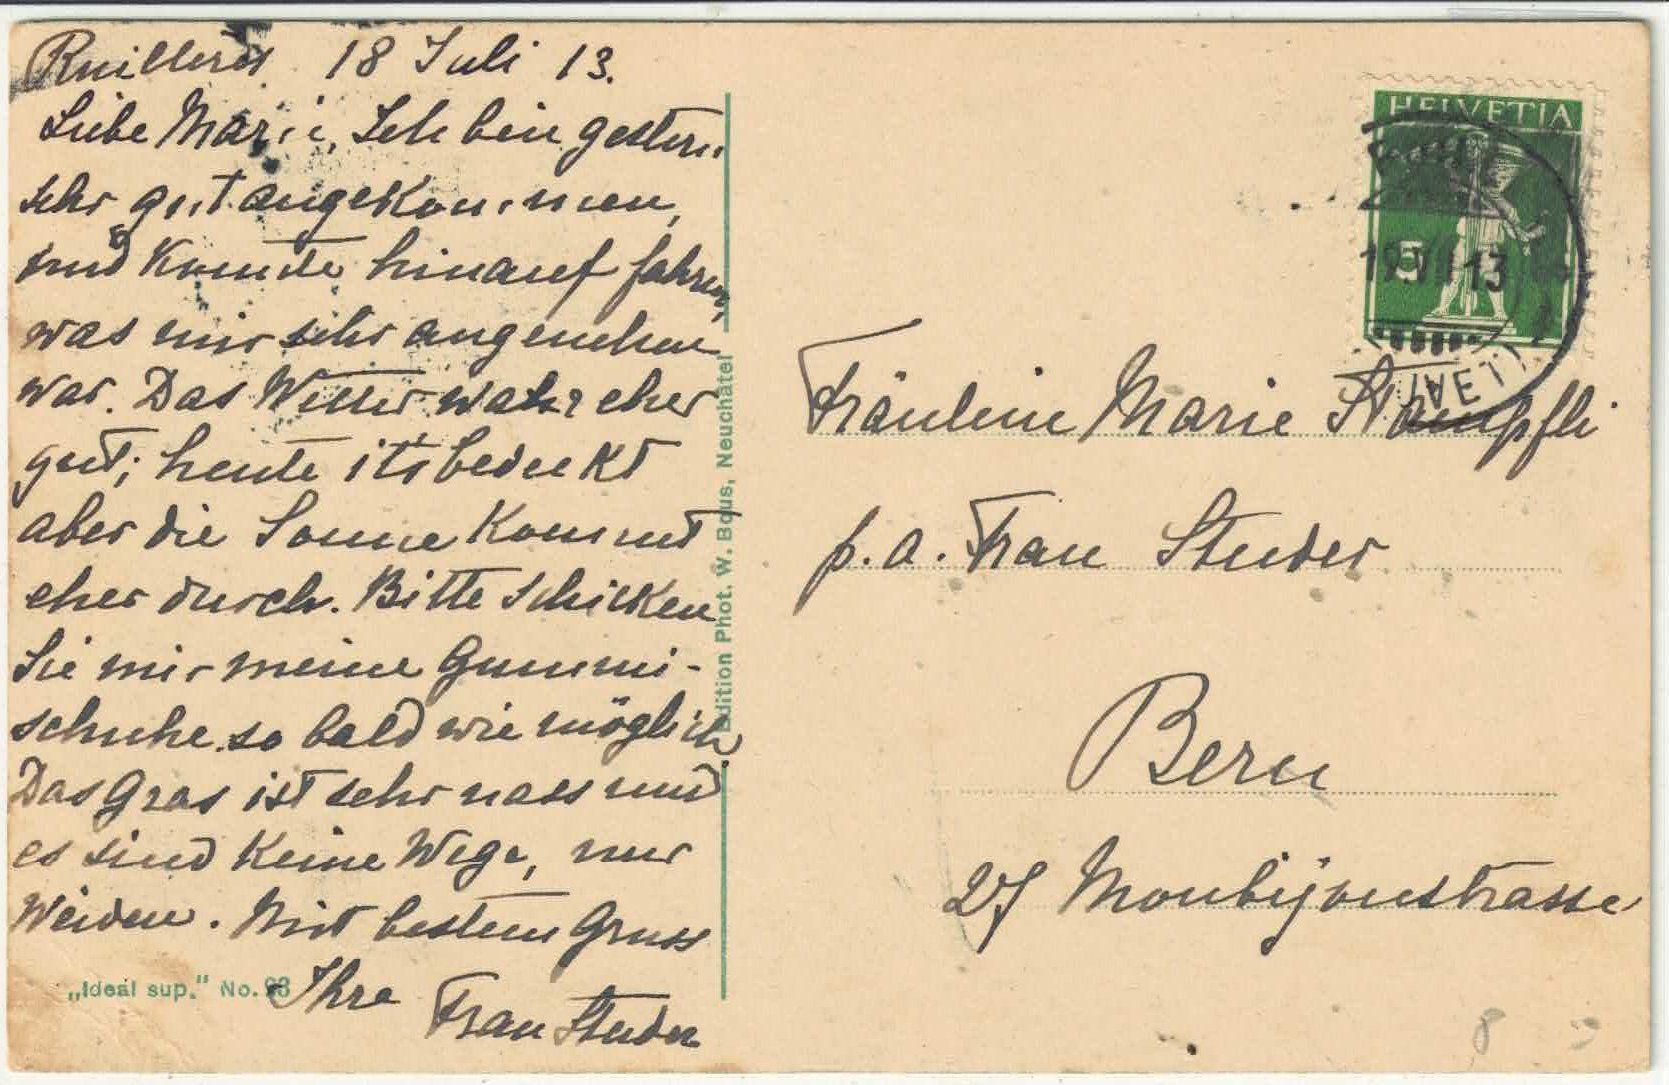 18 Juli 13.
Liebe Marie, Ich bin gestern
sehr gut angekommen,
und konnte hinauf fahren,
was mir sehr angenehm
war. Das Wetter wahr eher
gut; heute its bedeckt
aber die Sonne kommt
eher durch. Bitte schicken
Sie mir meine Gummi-
schuhe so bald wie möglich
Das Gras ist sehr nass und
es sind keine Wege, nur
Weiden. Mit bestem Gruss
Ihre Frau Studer
„Ideal sup.“ No.
Edition Phot. W. Bous, Neuchâtel
HELVETIA
5
19.VII.13
Fräulein Marie Stampfli
p. a. Frau Studer
Bern
27 Monbijoustrasse
8